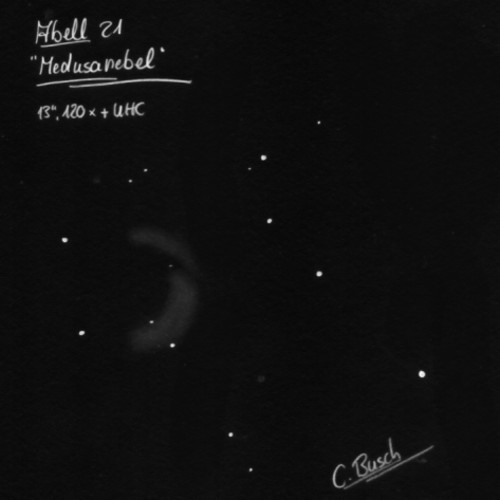 Abell 21
"Medusanebel"
13", 120x + UHC
C. Busch